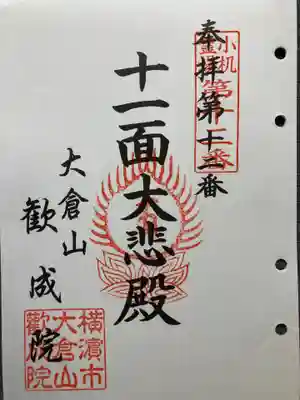 小机
第十二番
奉拝第十二番
十一面大悲殿
大倉山
歡成院
横濱市
大倉山
歡成院